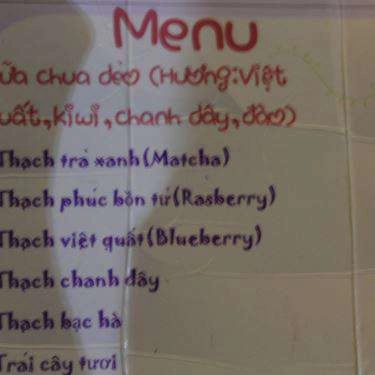 Menu
ữa chua dẻo (Hương:Việt
uất,kiwi,chanh dây,đào)
Thạch trà xanh(Matcha)
Thạch phúc bồn tử(Rasberry)
Thạch việt quất(Blueberry)
Thạch chanh dây
Thạch bạc hà
Trái cây tươi